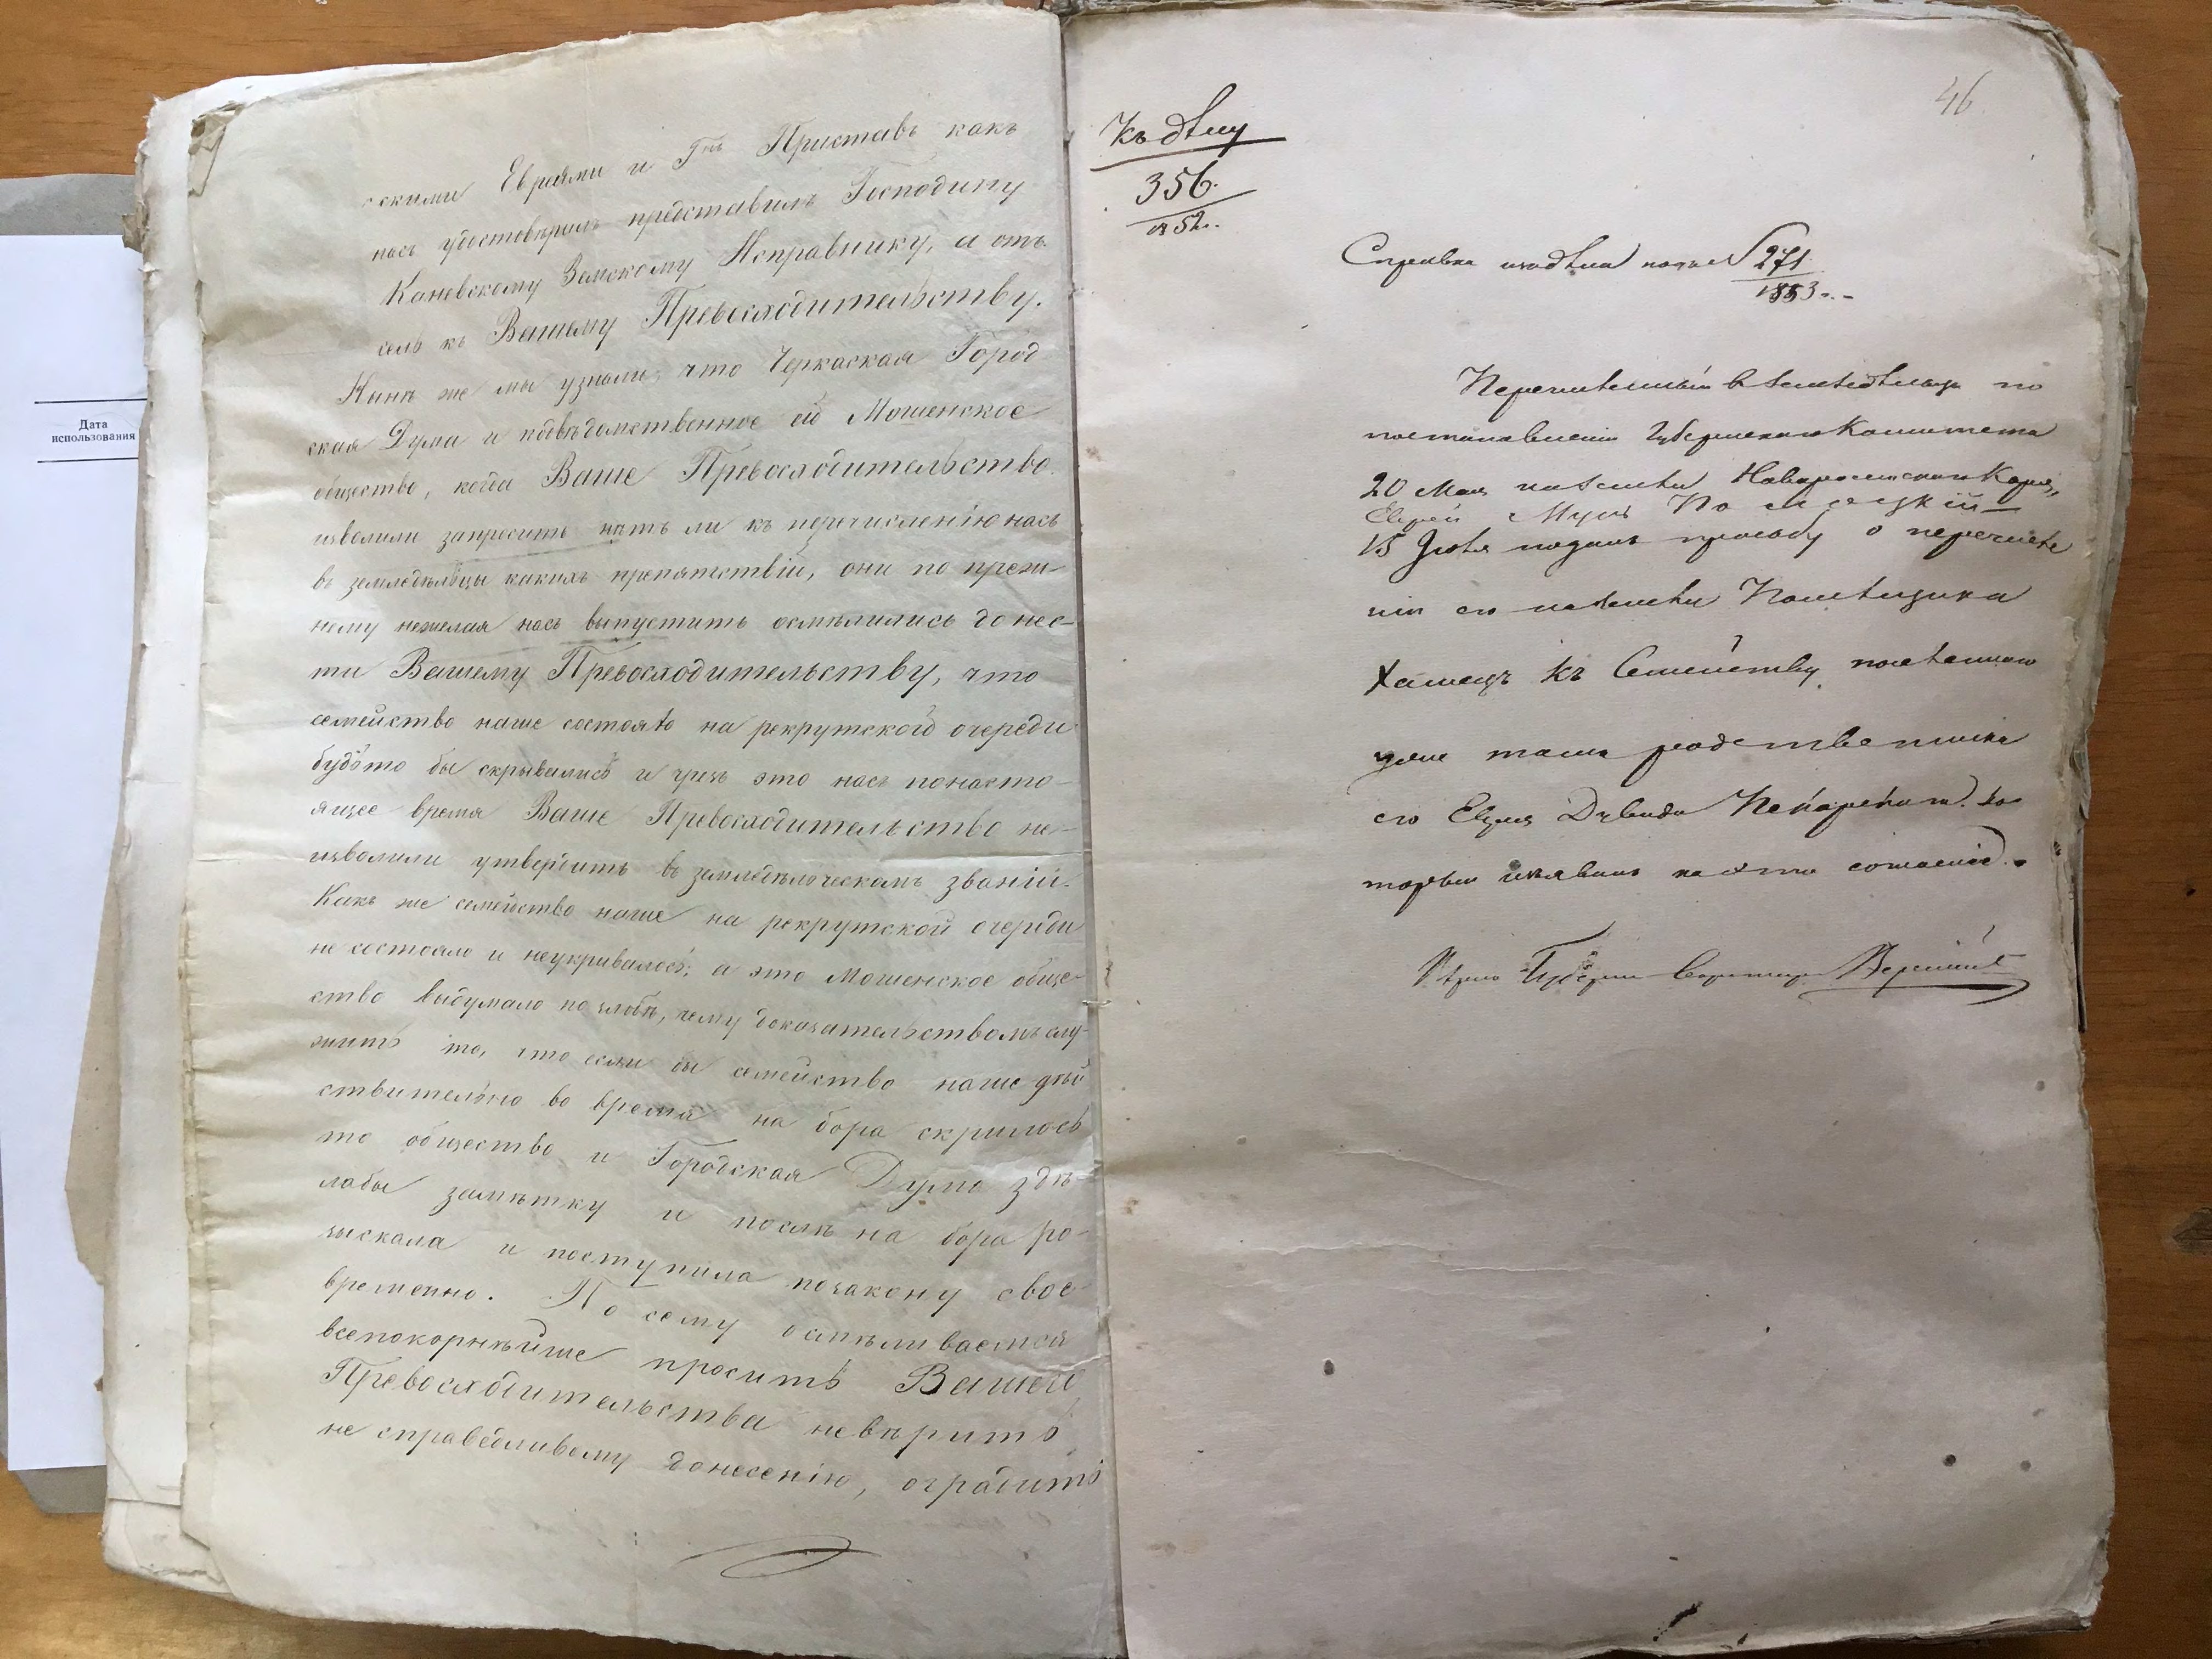 Дата
использования
скими Евреями и Гнъ Приставъ какъ
насъ удостовѣрилъ представилъ Господину
Каневскому Земскому Исправнику, а отъ
сель къ Вашему Превосходительству.
Нынѣ же мы узнали, что Черкаская Город
ская Дума и подвѣдомственное ей Мошенское
общество, когда Ваше Превосходительство
изволили запросить нѣтъ ли къ перечисленію насъ
въ земледѣльцы какихъ препятствій, они по преж-
нему нежелая насъ выпустить осмѣлились донес-
ти Вашему Превосходительству, что
семейство наше состоя на рекрутской очереди
будьто бы скрывались и чрезъ это насъ понасто-
ящее время Ваше Превосходительство не-
изволили утвердить въ земледѣлческомъ званіи.
Какъ же семейство наше на рекрутской очереди
не состояло и неукривалось; а это Мошенское обще-
ство выдумало по злобѣ, чему доказательствомъ слу-
житъ то, что если бы семейство наше дѣй
ствительно во время на бора скрилось
то общество и Городская Дума здѣ-
лабы замѣтку и послѣ на бора ро-
зыскала и поступила позакону свое-
временно. По сему осмѣливаемся
всепокорнѣйше просить Вашего
Превосходительства невѣрить
не справедливому донесенію, оградить
46
Къ дѣлу
356.
1852.
Справка изъ дѣла по № 271
1853
Перечисленный в земледѣльцы по
постановленію Губернскаго Комитета
20 Мая на земли
Еврей
15 Іюля подалъ прозьбу о перечисле
ніи его на земли Помѣщика
къ Семейству поселеннаго
уже тамъ родственника
его Еврея Давида
торый изъявилъ на это согласіе.